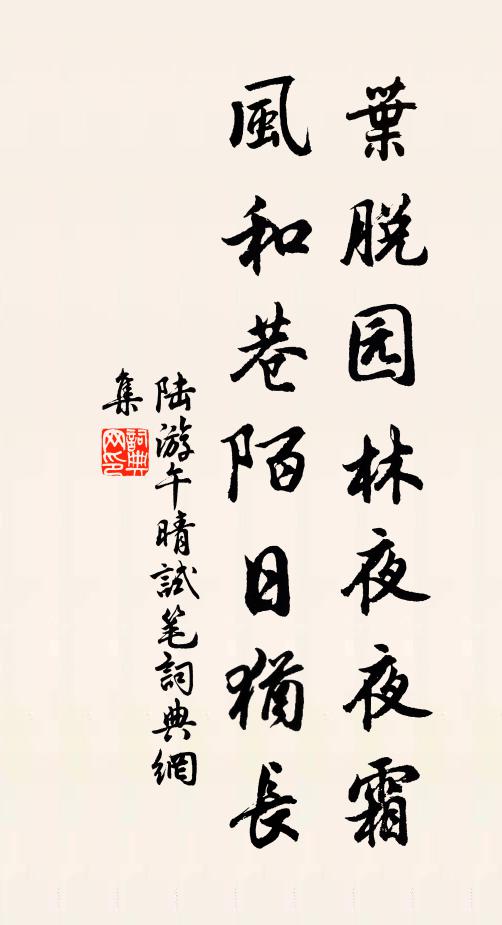 葉脱园林夜夜霜
風和巷陌日猶長
陆游午晴試笔詞典網
集
詞典网印